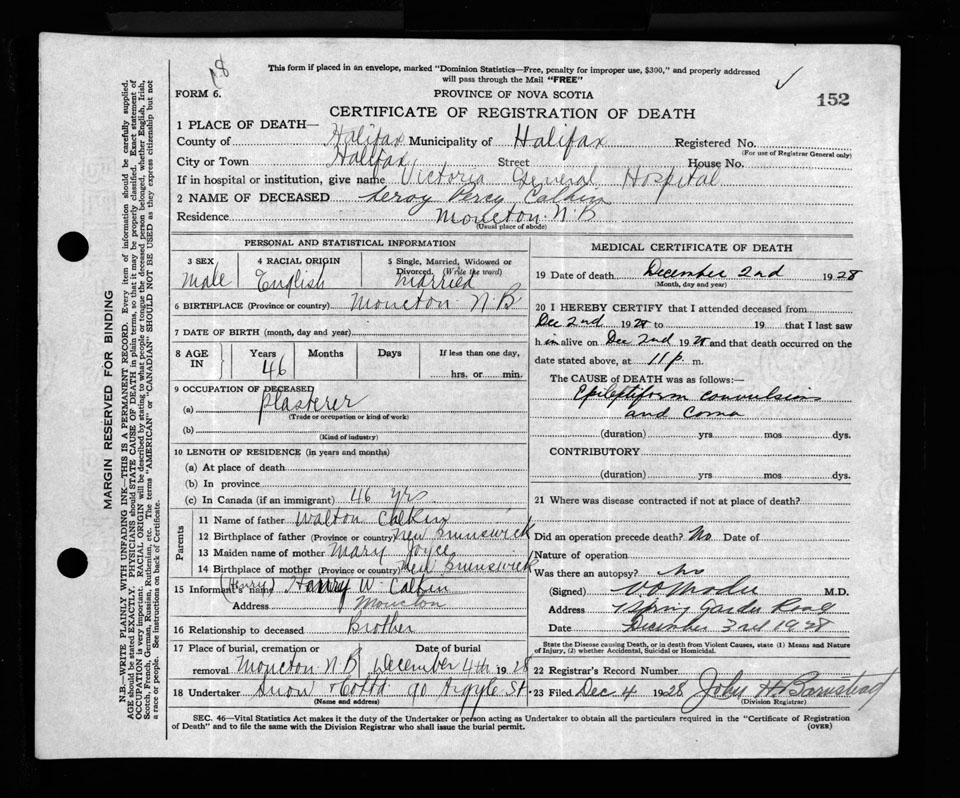 18
This form if placed in an envelope, marked "Dominion Statistics—Free, penalty for improper use, $300," and properly addressed
will pass through the Mail "FREE"
✓
FORM 6.
PROVINCE OF NOVA SCOTIA
152
CERTIFICATE OF REGISTRATION OF DEATH
1 PLACE OF DEATH—
County of Halifax Municipality of Halifax Registered No.
(For use of Registrar General only)
City or Town Halifax Street House No.
If in hospital or institution, give name Victoria General Hospital
2 NAME OF DECEASED Leroy Percy Calkin
Residence Moncton N.B
(Usual place of abode)
PERSONAL AND STATISTICAL INFORMATION
3 SEX 4 RACIAL ORIGIN 5 Single, Married, Widowed or
Divorced. (Write the word)
Male English married
6 BIRTHPLACE (Province or country) Moncton N.B
7 DATE OF BIRTH (month, day and year)
8 AGE IN Years Months Days If less than one day,
46 hrs. or min.
9 OCCUPATION OF DECEASED
(a) plasterer
(Trade or occupation or kind of work)
(b)
(Kind of industry)
10 LENGTH OF RESIDENCE (in years and months)
(a) At place of death
(b) In province
(c) In Canada (if an immigrant) 46 yrs
Parents
11 Name of father Walton Calkin
12 Birthplace of father (Province or country) New Brunswick
13 Maiden name of mother Mary Joyce
14 Birthplace of mother (Province or country) New Brunswick
15 Informant's name (Henry) Harry W. Calkin
Address Moncton
16 Relationship to deceased Brother
17 Place of burial, cremation or Date of burial
removal Moncton N.B. December 4th 1928
18 Undertaker Snow & Co Ltd. 90 Argyle St.
(Name and address)
MEDICAL CERTIFICATE OF DEATH
19 Date of death December 2nd 1928
(Month, day and year)
20 I HEREBY CERTIFY that I attended deceased from
Dec 2nd 1928 to 19 that I last saw
h im alive on Dec 2nd 1928 and that death occurred on the
date stated above, at 11 p. m.
The CAUSE of DEATH was as follows:—
Epileptiform convulsions
and coma
(duration) yrs mos dys.
CONTRIBUTORY
(duration) yrs. mos. dys.
21 Where was disease contracted if not at place of death?
Did an operation precede death? No Date of
Nature of operation
Was there an autopsy? No
(Signed) M.D.
Address Spring Garden Road
Date December 3rd 1928
State the Disease causing Death, or in death from Violent Causes, state (1) Means and Nature
of Injury, (2) whether Accidental, Suicidal, or Homicidal.
22 Registrar's Record Number
23 Filed Dec. 4 1928 John H Barnstead
(Division Registrar)
SEC. 46—Vital Statistics Act makes it the duty of the Undertaker or person acting as Undertaker to obtain all the particulars required in the "Certificate of Registration
of Death" and to file the same with the Division Registrar who shall issue the burial permit.
(OVER)
MARGIN RESERVED FOR BINDING
N.B.—WRITE PLAINLY WITH UNFADING INK—THIS IS A PERMANENT RECORD. Every item of information should be carefully supplied.
AGE should be stated EXACTLY. PHYSICIANS should STATE CAUSE OF DEATH in plain terms, so that it may be properly classified. Exact statement of
OCCUPATION is very important. RACIAL ORIGIN will be described by stating to what people or tongue the deceased person belonged, whether English, Irish,
Scotch, French, German, Russian, Ruthenian, etc. The terms "AMERICAN" or "CANADIAN" SHOULD NOT BE USED as they express citizenship but not
a race or people. See instructions on back of Certificate.